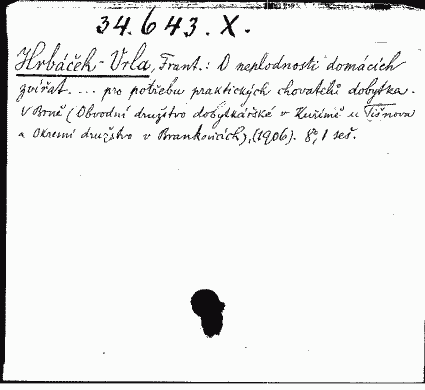 34.643.X.
Hrbáček-Vrla, Frant.: O neplodnosti domácích
zvířat.... pro potřebu praktických chovatelů dobytka.
V Brně (Obvodní družstvo dobytkářské v Kuřimě u Tišnova
a Okresní družstvo v Brankovicích), (1906). 8°, 1 seš.